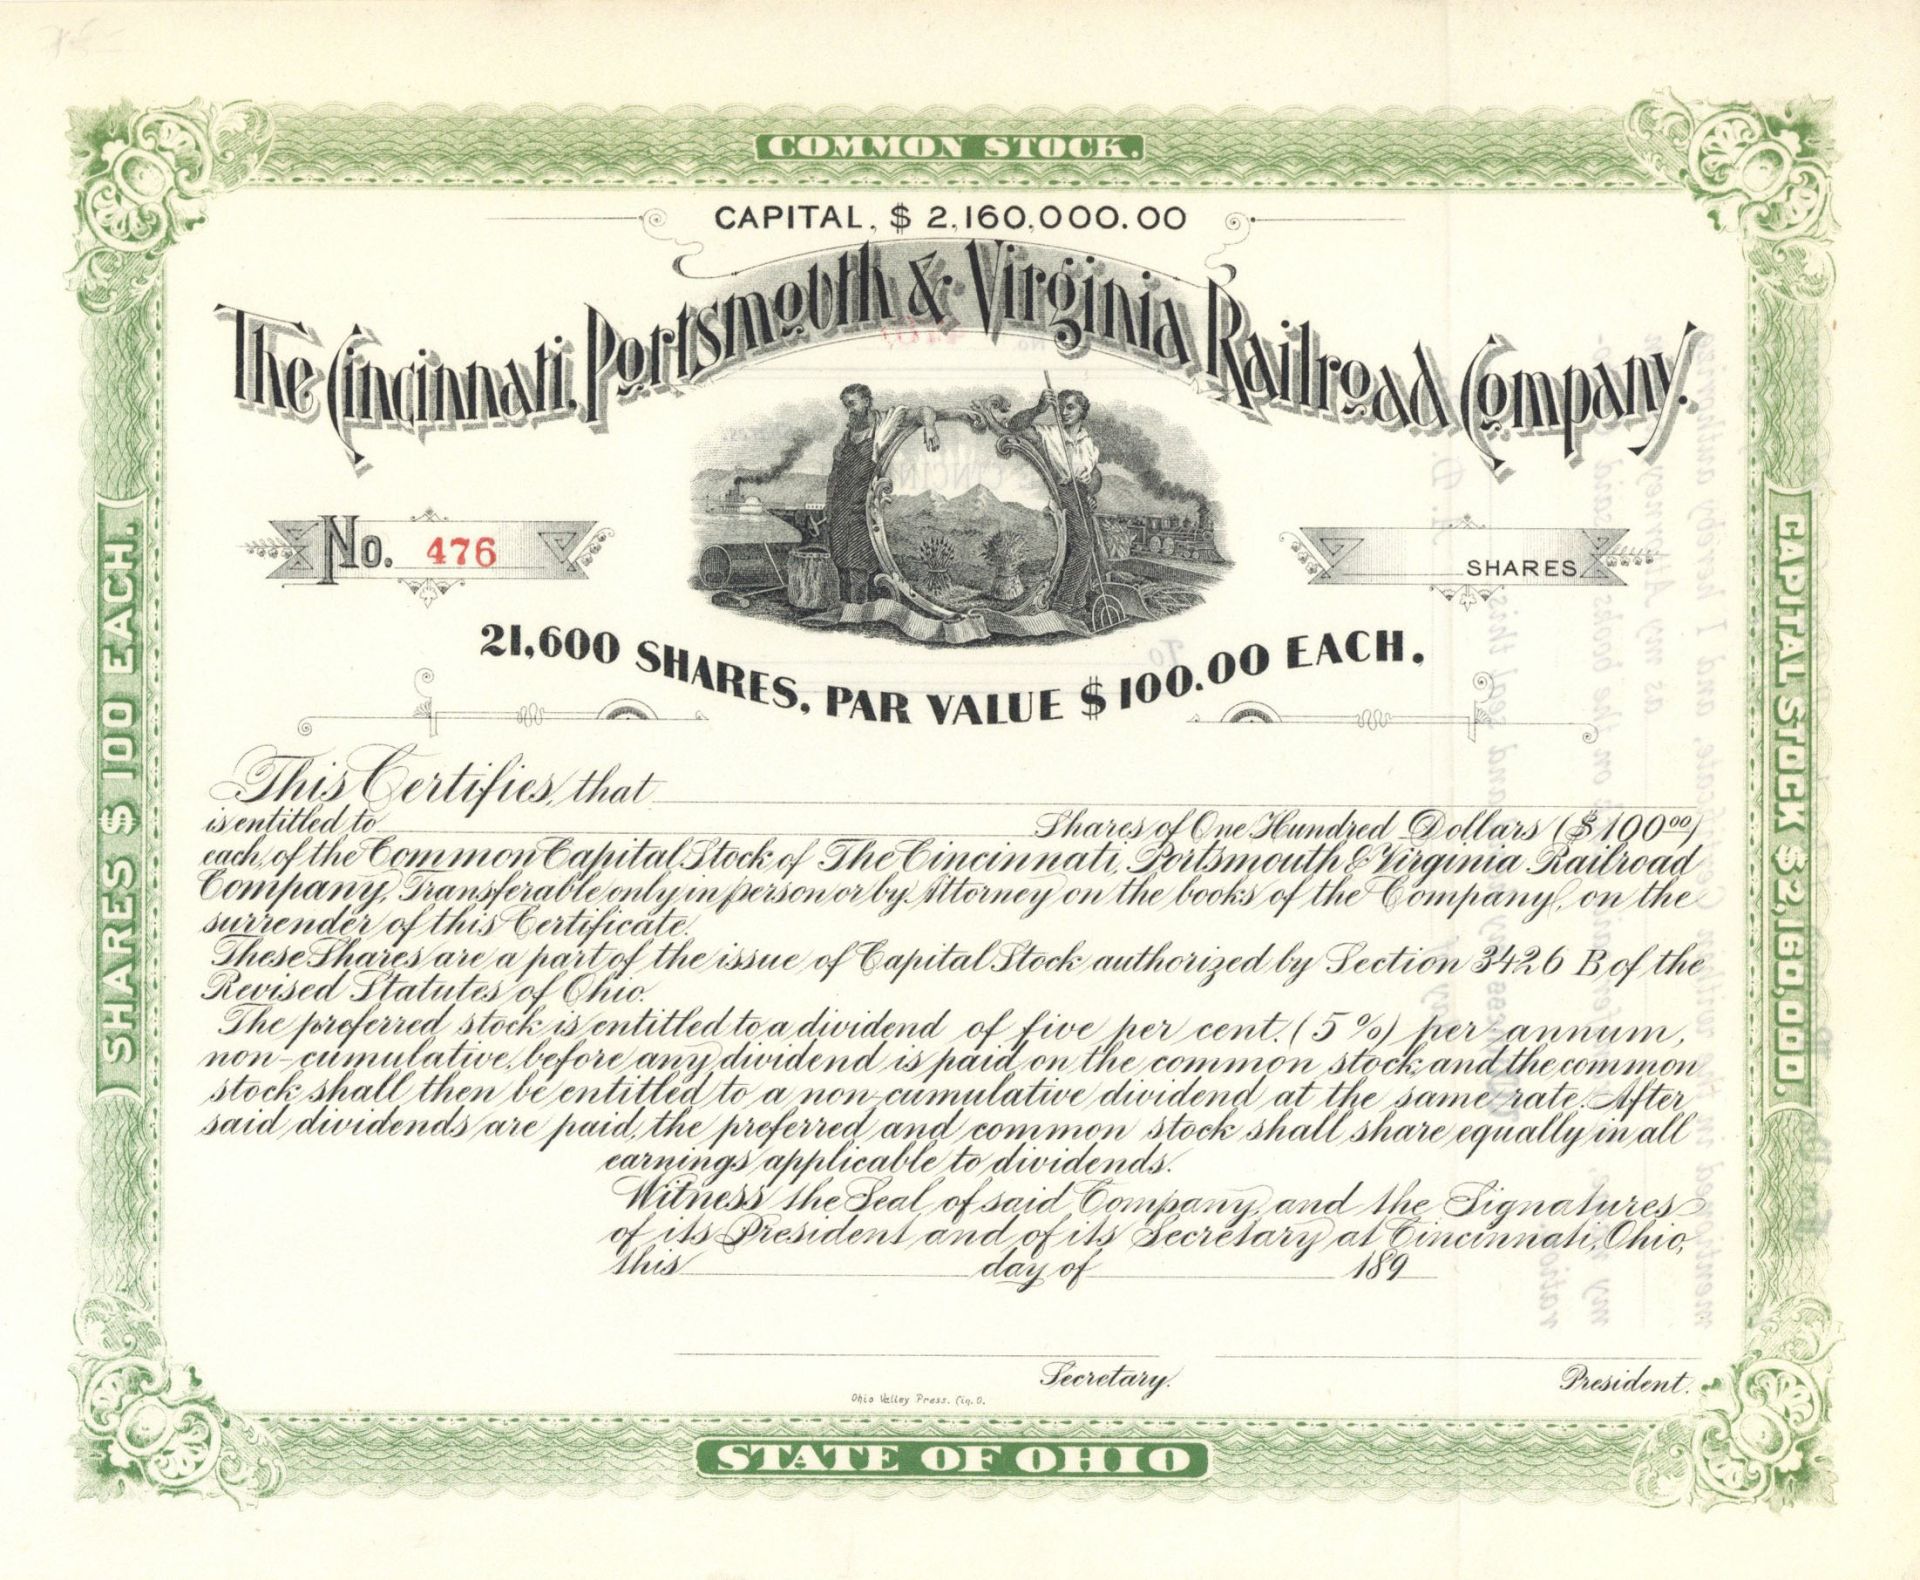 COMMON STOCK.
CAPITAL, $ 2,160,000.00
The Cincinnati, Portsmouth & Virginia Railroad Company.
No. 476
SHARES
21,600 SHARES, PAR VALUE $ 100.00 EACH.
SHARES $ 100 EACH.
CAPITAL STOCK $ 2,160,000.
This Certifies, that
is entitled to Shares of One Hundred Dollars ($100.00)
each, of the Common Capital Stock of The Cincinnati, Portsmouth & Virginia Railroad
Company, Transferable only in person or by Attorney on the books of the Company, on the
surrender of this Certificate.
These Shares are a part of the issue of Capital Stock authorized by Section 3426 B of the
Revised Statutes of Ohio.
The preferred stock is entitled to a dividend of five per cent. (5%) per annum,
non-cumulative, before any dividend is paid on the common stock, and the common
stock shall then be entitled to a non-cumulative dividend at the same rate. After
said dividends are paid, the preferred and common stock shall share equally in all
earnings applicable to dividends.
Witness the Seal of said Company, and the Signatures
of its President and of its Secretary at Cincinnati, Ohio,
this day of 189
Secretary.
President.
Ohio Valley Press. Cin. O.
STATE OF OHIO